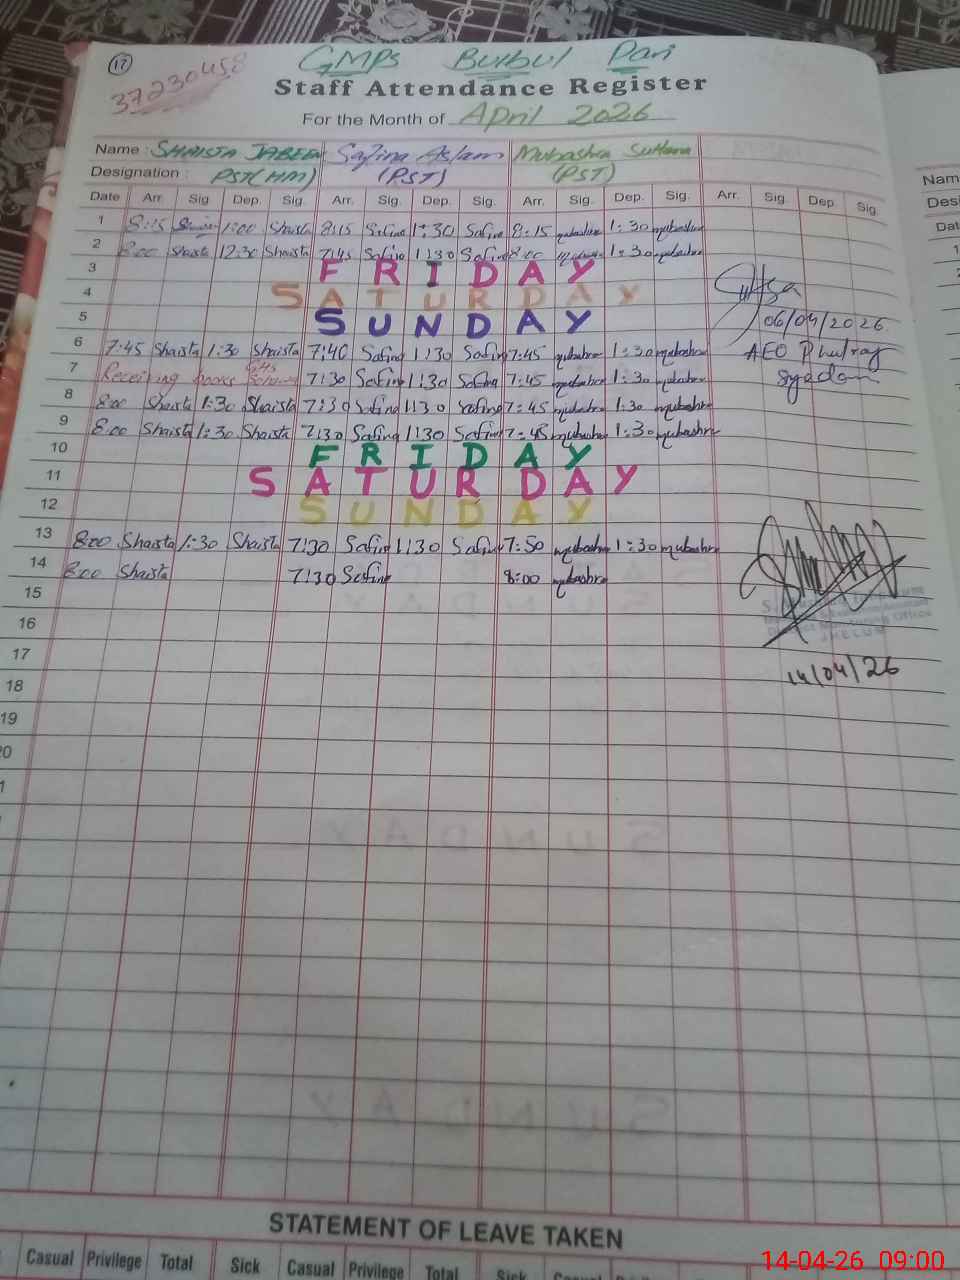 17
37230458
GMPS Burbul Pari
Staff Attendance Register
For the Month of April 2026
Name : SHAISTA JABEEN Safina Aslam Mubashra Sultana
Designation : PST(HM) (PST) (PST)
Date Arr. Sig. Dep. Sig. Arr. Sig. Dep. Sig. Arr. Sig. Dep. Sig. Arr. Sig. Dep. Sig.
1 8:15 1:00 Shaista 8:15 Safina 1:30 Safina 8:15 mubashra 1:30 mubashra
2 8:00 Shaista 12:30 Shaista 7:45 Safina 1:30 Safina 8:00 mubashra 1:30 mubashra
3 FRIDAY
4 SATURDAY
5 SUNDAY
06/04/2026
6 7:45 Shaista 1:30 Shaista 7:40 Safina 1:30 Safina 7:45 mubashra 1:30 mubashra
AEO Phulray
Syedan
7 Receiving books GHS 7:30 Safina 1:30 Safina 7:45 mubashra 1:30 mubashra
8 8:00 Shaista 1:30 Shaista 7:30 Safina 1:30 Safina 7:45 mubashra 1:30 mubashra
9 8:00 Shaista 1:30 Shaista 7:30 Safina 1:30 Safina 7:45 mubashra 1:30 mubashra
10 FRIDAY
11 SATURDAY
12 SUNDAY
13 8:00 Shaista 1:30 Shaista 7:30 Safina 1:30 Safina 7:50 mubashra 1:30 mubashra
14 8:00 Shaista 7:30 Safina 8:00 mubashra
15
16
JHELUM
14/04/26
17
18
19
STATEMENT OF LEAVE TAKEN
Casual Privilege Total Sick Casual Privilege Total Sick
14-04-26 09:00
Name